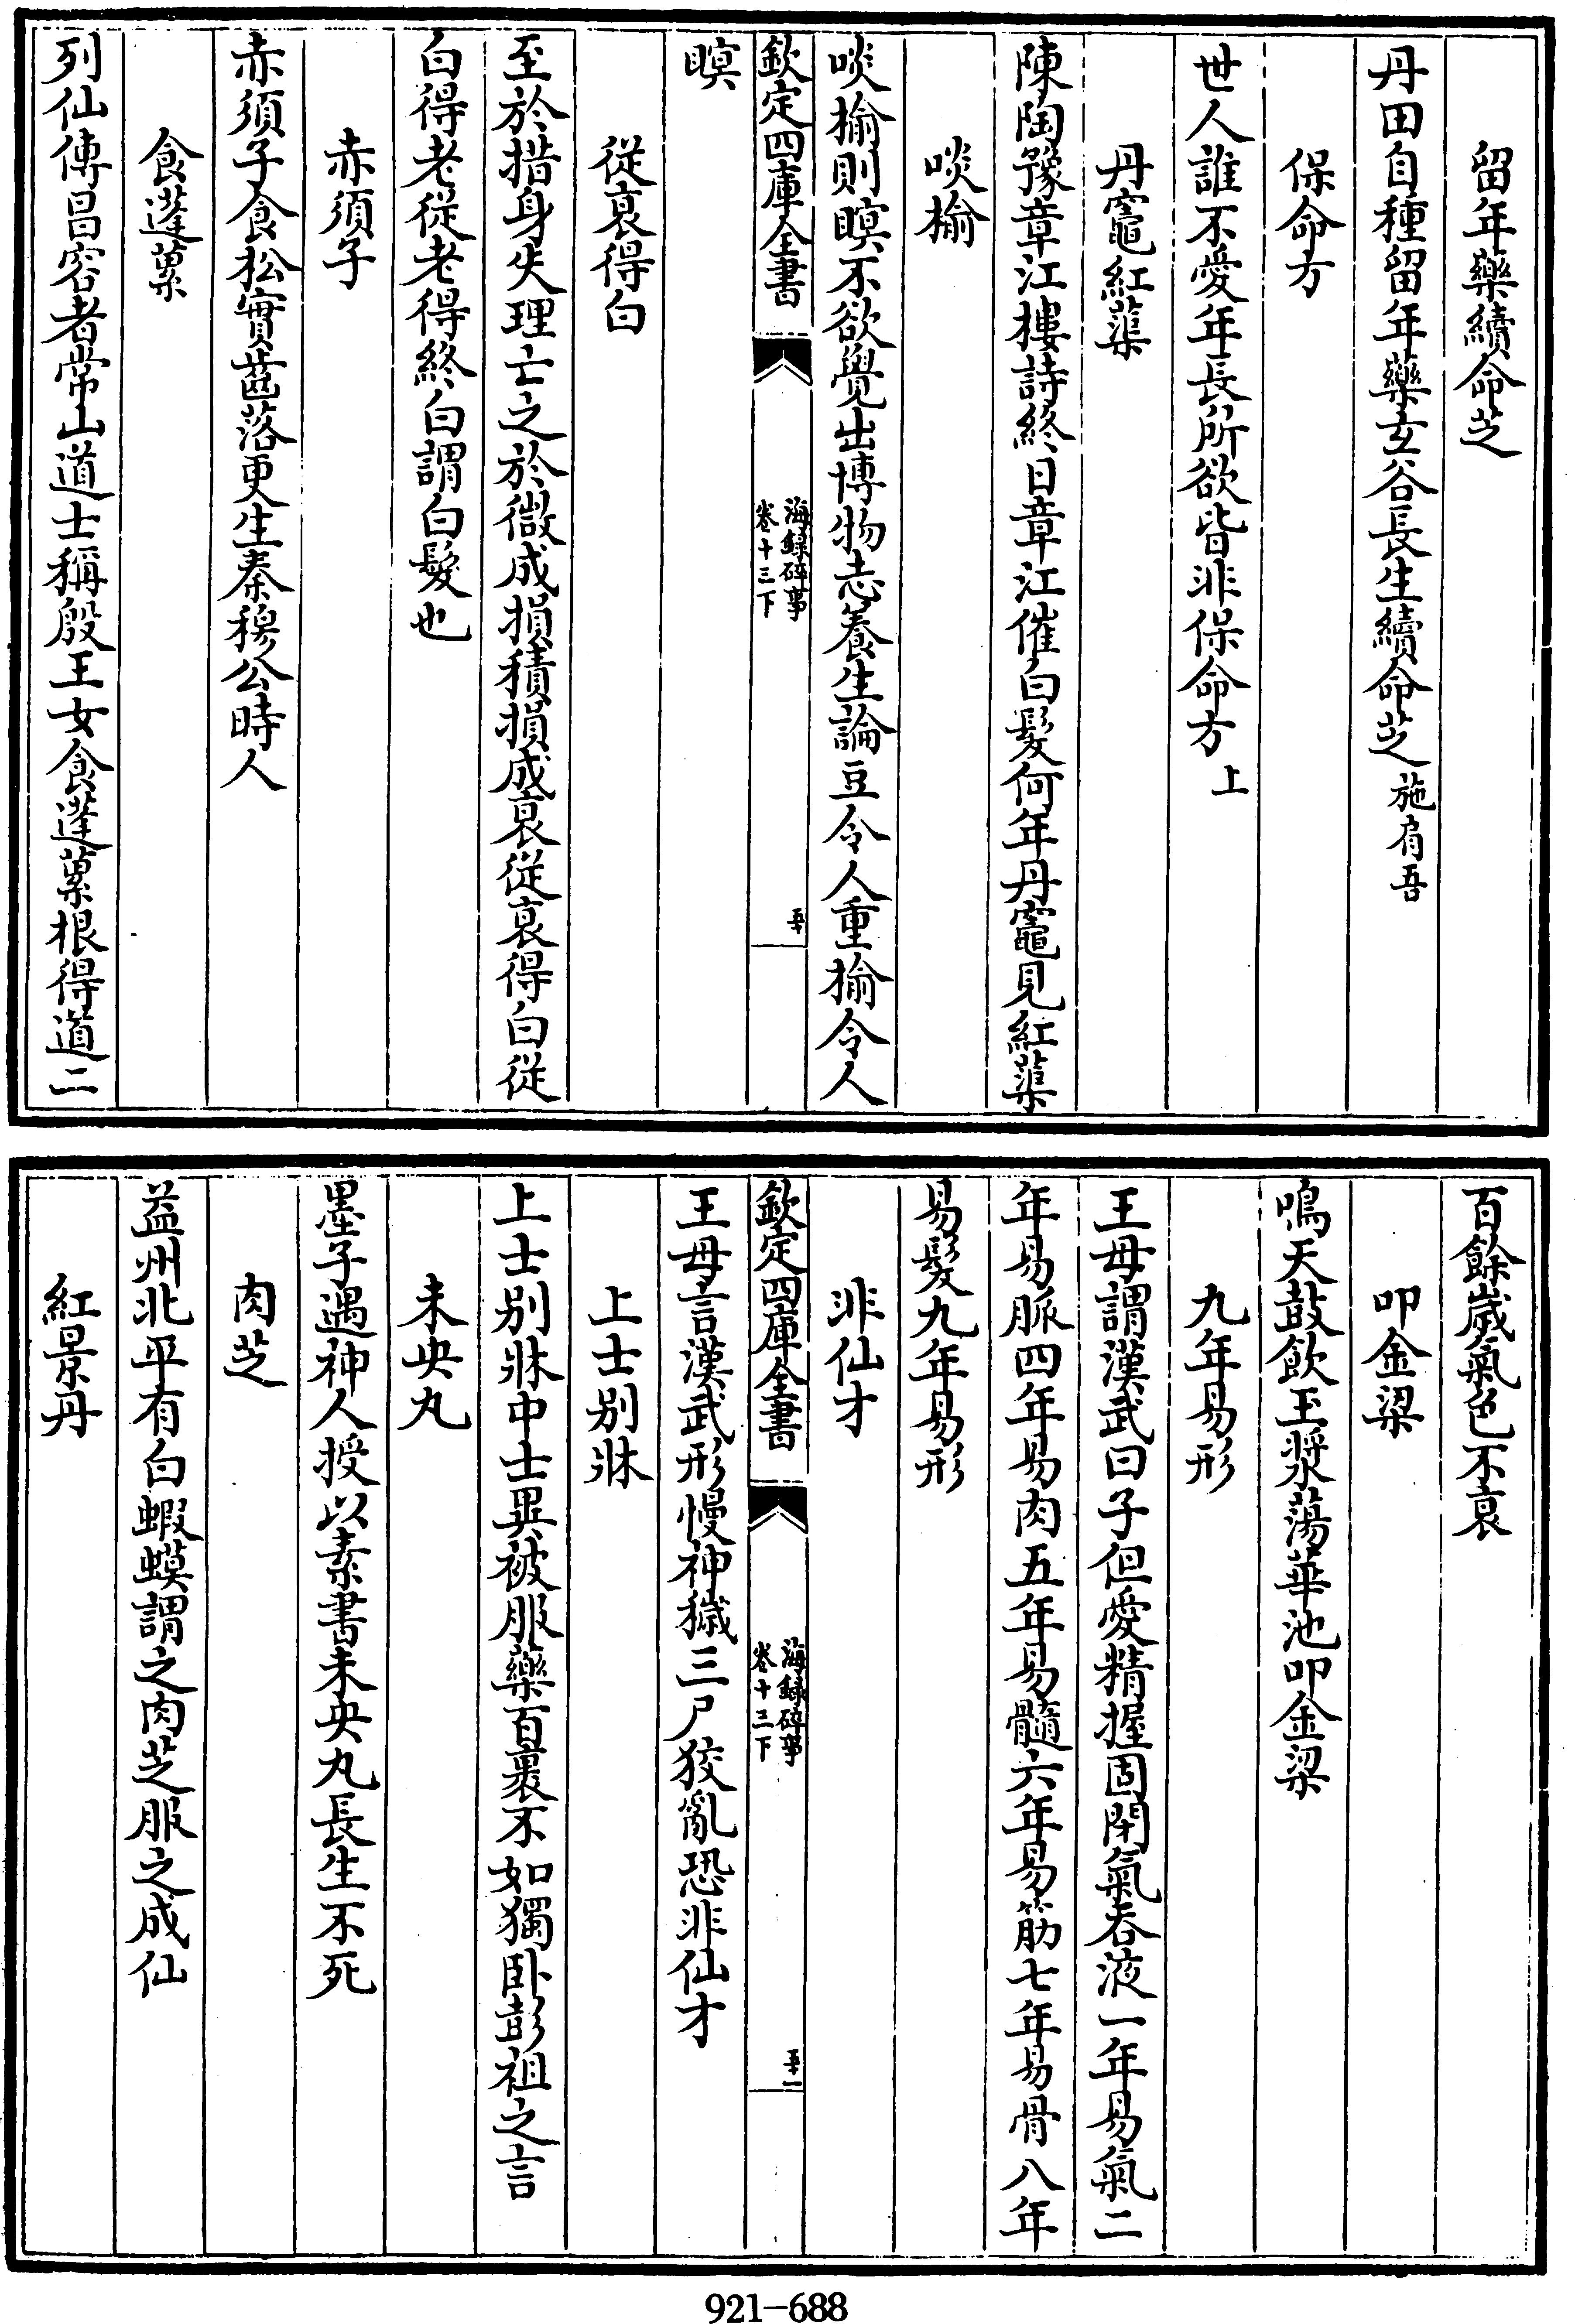 留年藥續命芝
丹田自種留年藥玄谷長生續命芝施肩吾
保命方
世人誰不愛年長所欲皆非保命方上
丹竈紅蕖
陳陶豫章江樓詩終日章江催白髮何年丹竈見紅蕖
啖榆
啖榆則瞑不欲覺出博物志養生論豆令人重榆令人
欽定四庫全書
海録碎事
卷十三下
五十
瞑
從衰得白
至於措身失理亡之於微成損積損成衰從衰得白從
白得老從老得終白謂白髮也
赤須子
赤須子食松實齒落更生秦穆公時人
食蓬蔂
列仙傳昌容者常山道士稱殷王女食蓬蔂根得道二
百餘歲氣色不衰
叩金梁
鳴天鼓飲玉漿蕩華池叩金梁
九年易形
王母謂漢武曰子但愛精握固閉氣吞液一年易氣二
年易脈四年易肉五年易髓六年易筋七年易骨八年
易髮九年易形
非仙才
欽定四庫全書
海録碎事
卷十三下
五十一
王母言漢武形慢神穢三尸狡亂恐非仙才
上士别牀
上士别牀中士異被服藥百裹不如獨卧彭祖之言
未央丸
墨子遇神人授以素書未央丸長生不死
肉芝
益州北平有白蝦蟆謂之肉芝服之成仙
紅景丹
921-688